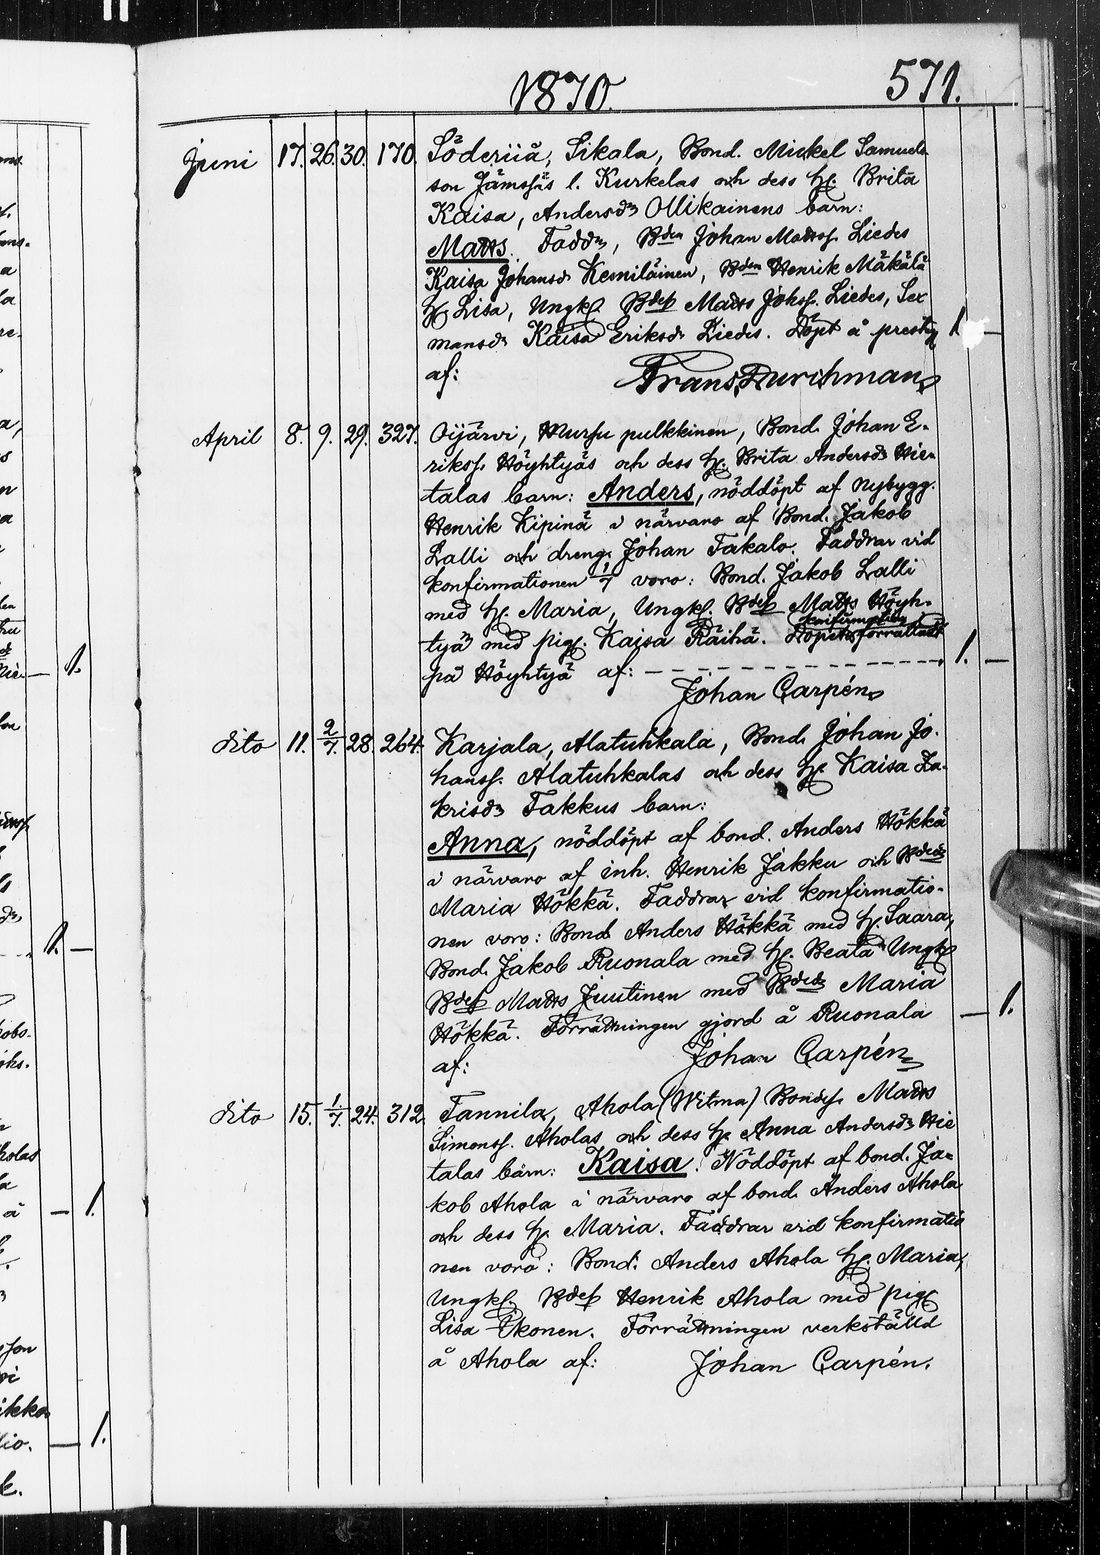 1870.
571.
Juni 17. 26. 30. 170. Söderiiå, Sikala, Bond. Mickel Samuels
son Jämsfäs l. Kurkelas och dess h. Brita
Kaisa, Andersdr Ollikainens barn:
Matts. Faddr, Bden Johan Mattsf. Liedes
Kaisa Johansd. Kemiläinen, Bden Henrik Mäkälä
h. Lisa, Ungk. Bdes Matts Johsf. Liedes, Sex
mansdr Kaisa Eriksdr Liedes. Döpt å prestg
af: Frans Durchman 1. —
April 8. 9. 29. 327. Oijärvi, Mursu pulkkinen, Bond. Johan E-
riksf. Höyhtyäs och dess h. Brita Andersdr Hie-
talas barn: Anders, nöddöpt af Nybygg.
Henrik Kipinä i närvaro af Bond. Jakob
Lalli och dreng. Johan Takalo. Faddrar vid
konfirmationen 1/7 voro: Bond. Jakob Lalli
med h. Maria, Ungk. Bdes Matts Höyh-
konfirmation
tyä med pig. Kaisa Räihä. Dopet förrättadt
på Höyhtyä af: 1. —
Johan Carpén
dito 11. 2/7. 28. 264. Karjala, Alatuhkala, Bond. Johan Jo-
hansf. Alatuhkalas och dess h. Kaisa Za-
krisdr Takkus barn:
Anna, nöddöpt af bond. Anders Hökkä
i närvaro af inh. Henrik Jakku och Bdedr
Maria Hökkä. Faddrar vid konfirmatio-
nen voro: Bond Anders Hökkä med h. Saara,
Bond. Jakob Ruonala med h. Beata Ungk
Bdes Matts Juutinen med Bdedr Maria
Hökkä. Förrättningen gjord å Ruonala — 1.
af: Johan Carpén
dito 15. 1/7. 24. 312. Tannila, Ahola (Witma) Bondes. Matts
Simonsf. Aholas och dess h. Anna Andersdr Hie
talas barn: Kaisa. Nöddöpt af bond. Ja-
kob Ahola i närvaro af bond. Anders Ahola
och dess h. Maria. Faddrar vid konfirmatio
nen voro: Bond. Anders Ahola h. Maria,
Ungk. Bdes Henrik Ahola med pig
Lisa Ukonen. Förrättningen verkställd
å Ahola af: Johan Carpén.